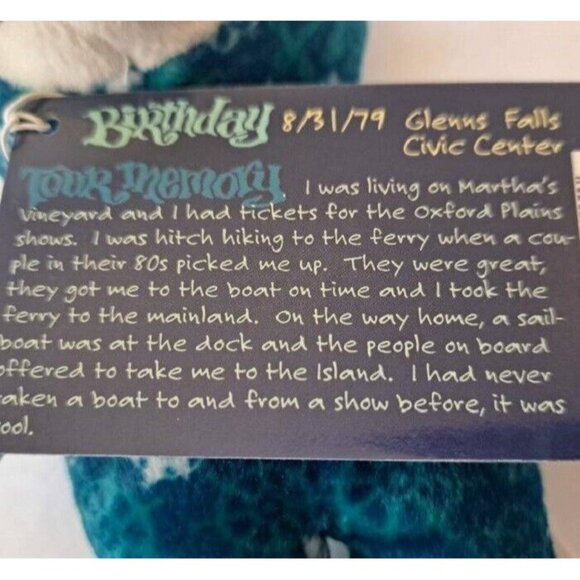 Birthday 8/31/79 Glenns Falls
Civic Center
Tour Memory I was living on Martha's
Vineyard and I had tickets for the Oxford Plains
shows. I was hitch hiking to the ferry when a cou-
ple in their 80s picked me up. They were great,
they got me to the boat on time and I took the
ferry to the mainland. On the way home, a sail-
boat was at the dock and the people on board
offered to take me to the Island. I had never
taken a boat to and from a show before, it was
cool.